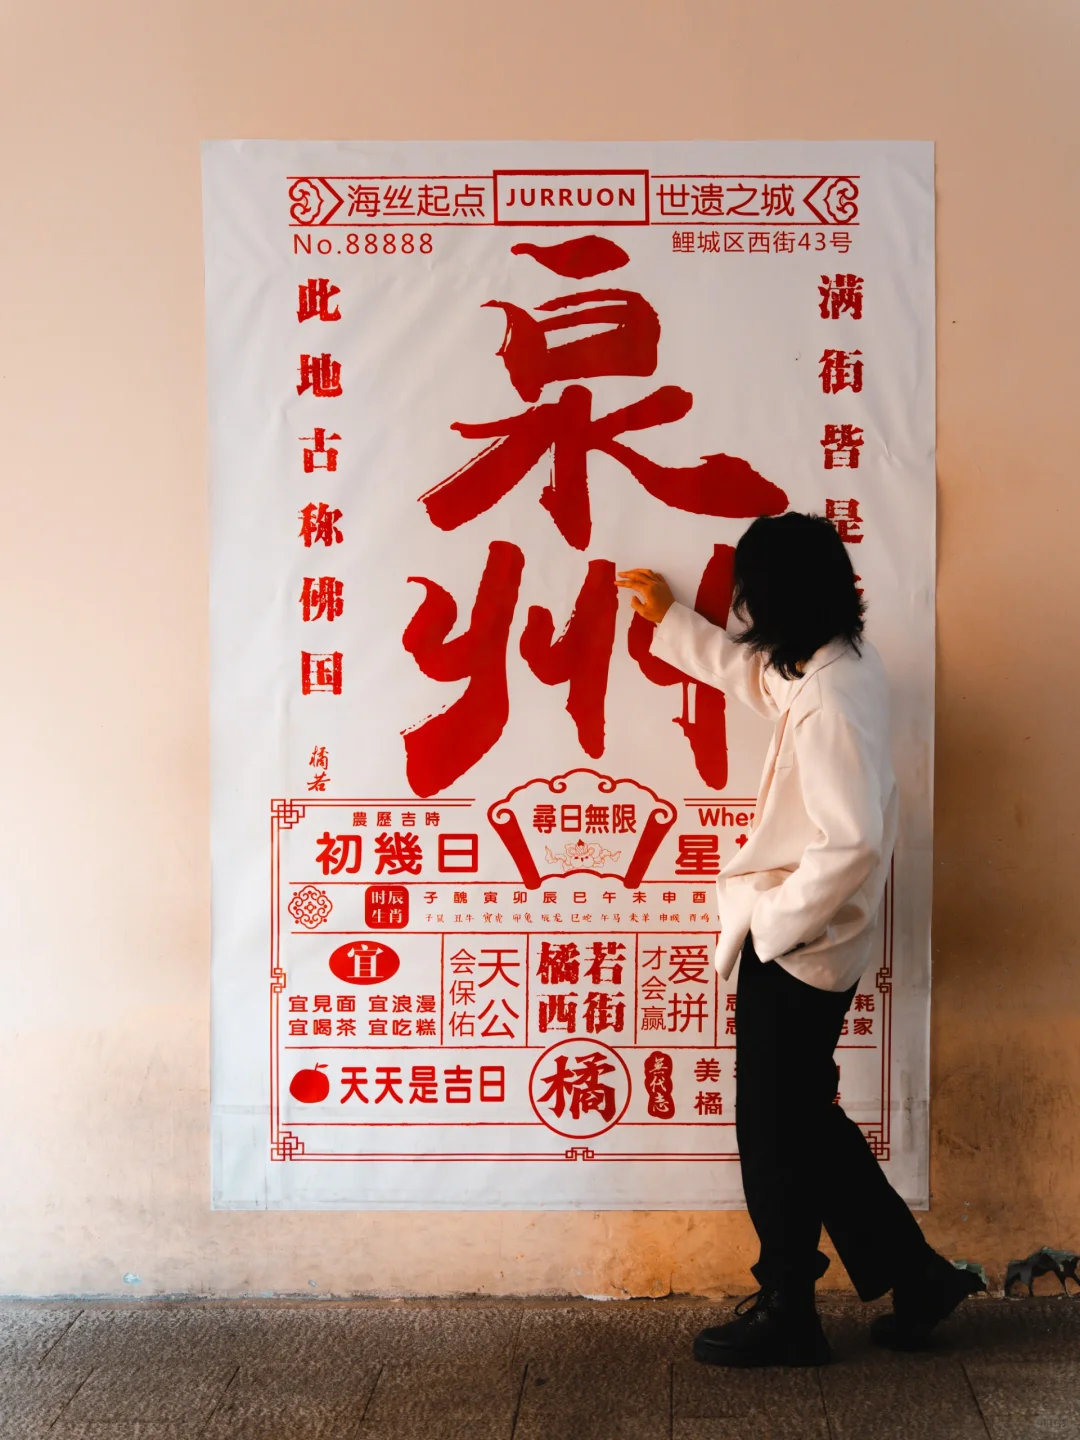 海丝起点 JURRUON 世遗之城
No.88888
鲤城区西街43号
泉州
此地古称佛国
满街皆是
橘若
農歷吉時
初幾日
尋日無限
星
时辰生肖
子 醜 寅 卯 辰 巳 午 未 申 酉
子鼠 丑牛 寅虎 卯兔 辰龙 巳蛇 午马 未羊 申猴 酉鸡
宜
宜見面 宜浪漫
宜喝茶 宜吃糕
天公
会保佑
橘若
西街
爱拼
才会赢
耗
家
天天是吉日
橘
美
橘